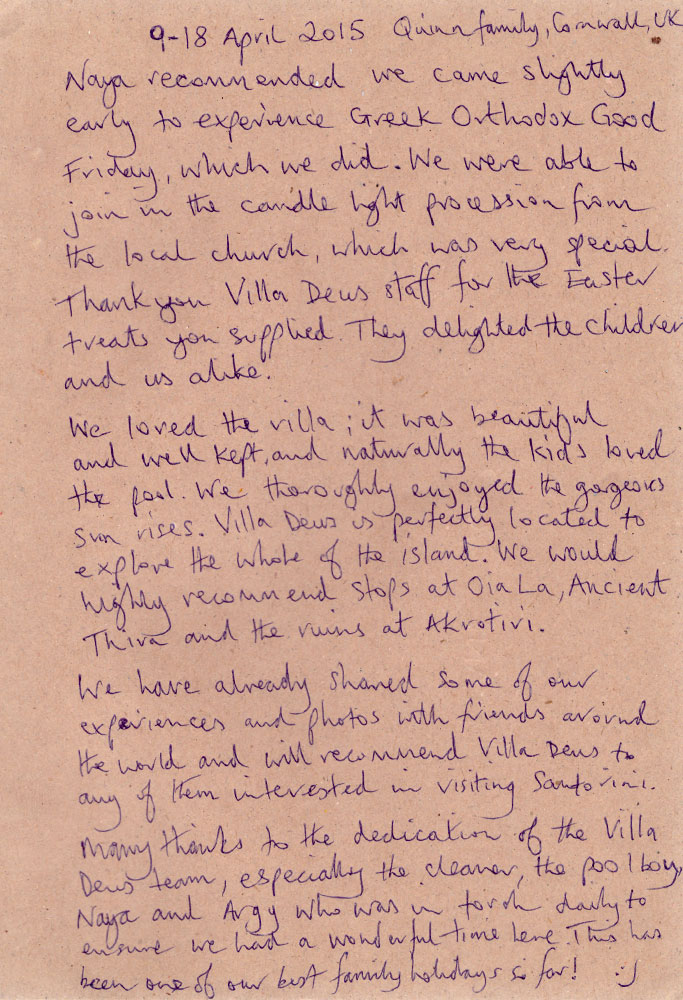 9-18 April 2015 Quinn family, Cornwall, UK
Naya recommended we came slightly
early to experience Greek Orthodox Good
Friday, which we did. We were able to
join in the candle light procession from
the local church, which was very special.
Thank you Villa Deus staff for the Easter
treats you supplied. They delighted the children
and us alike.
We loved the villa; it was beautiful
and well kept, and naturally the kids loved
the pool. We thoroughly enjoyed the gorgeous
sun rises. Villa Deus is perfectly located to
explore the whole of the island. We would
highly recommend stops at Oia La, Ancient
Thira and the ruins at Akrotiri.
We have already shared some of our
experiences and photos with friends around
the world and will recommend Villa Deus to
any of them interested in visiting Santorini.
Many thanks to the dedication of the Villa
Deus team, especially the cleaner, the pool boy,
Naya and Argy who was in torch daily to
ensure we had a wonderful time here. This has
been one of our best family holidays so far! :)